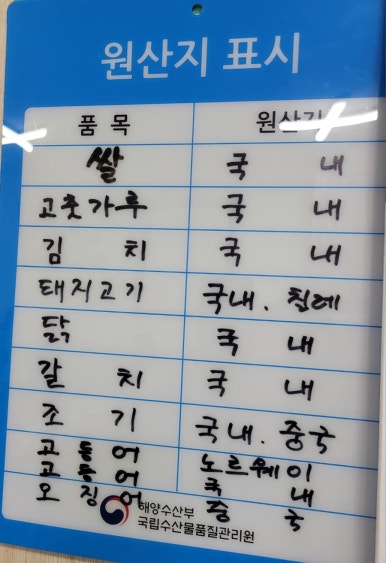 원산지 표시
품 목 원산지
쌀 국 내
고춧가루 국 내
김 치 국 내
태지고기 국내. 칠레
닭 국 내
갈 치 국 내
조 기 국내. 중국
고 등 어 노르웨이
고 등 어 국 내
오 징 어 중 국
해양수산부
국립수산물품질관리원